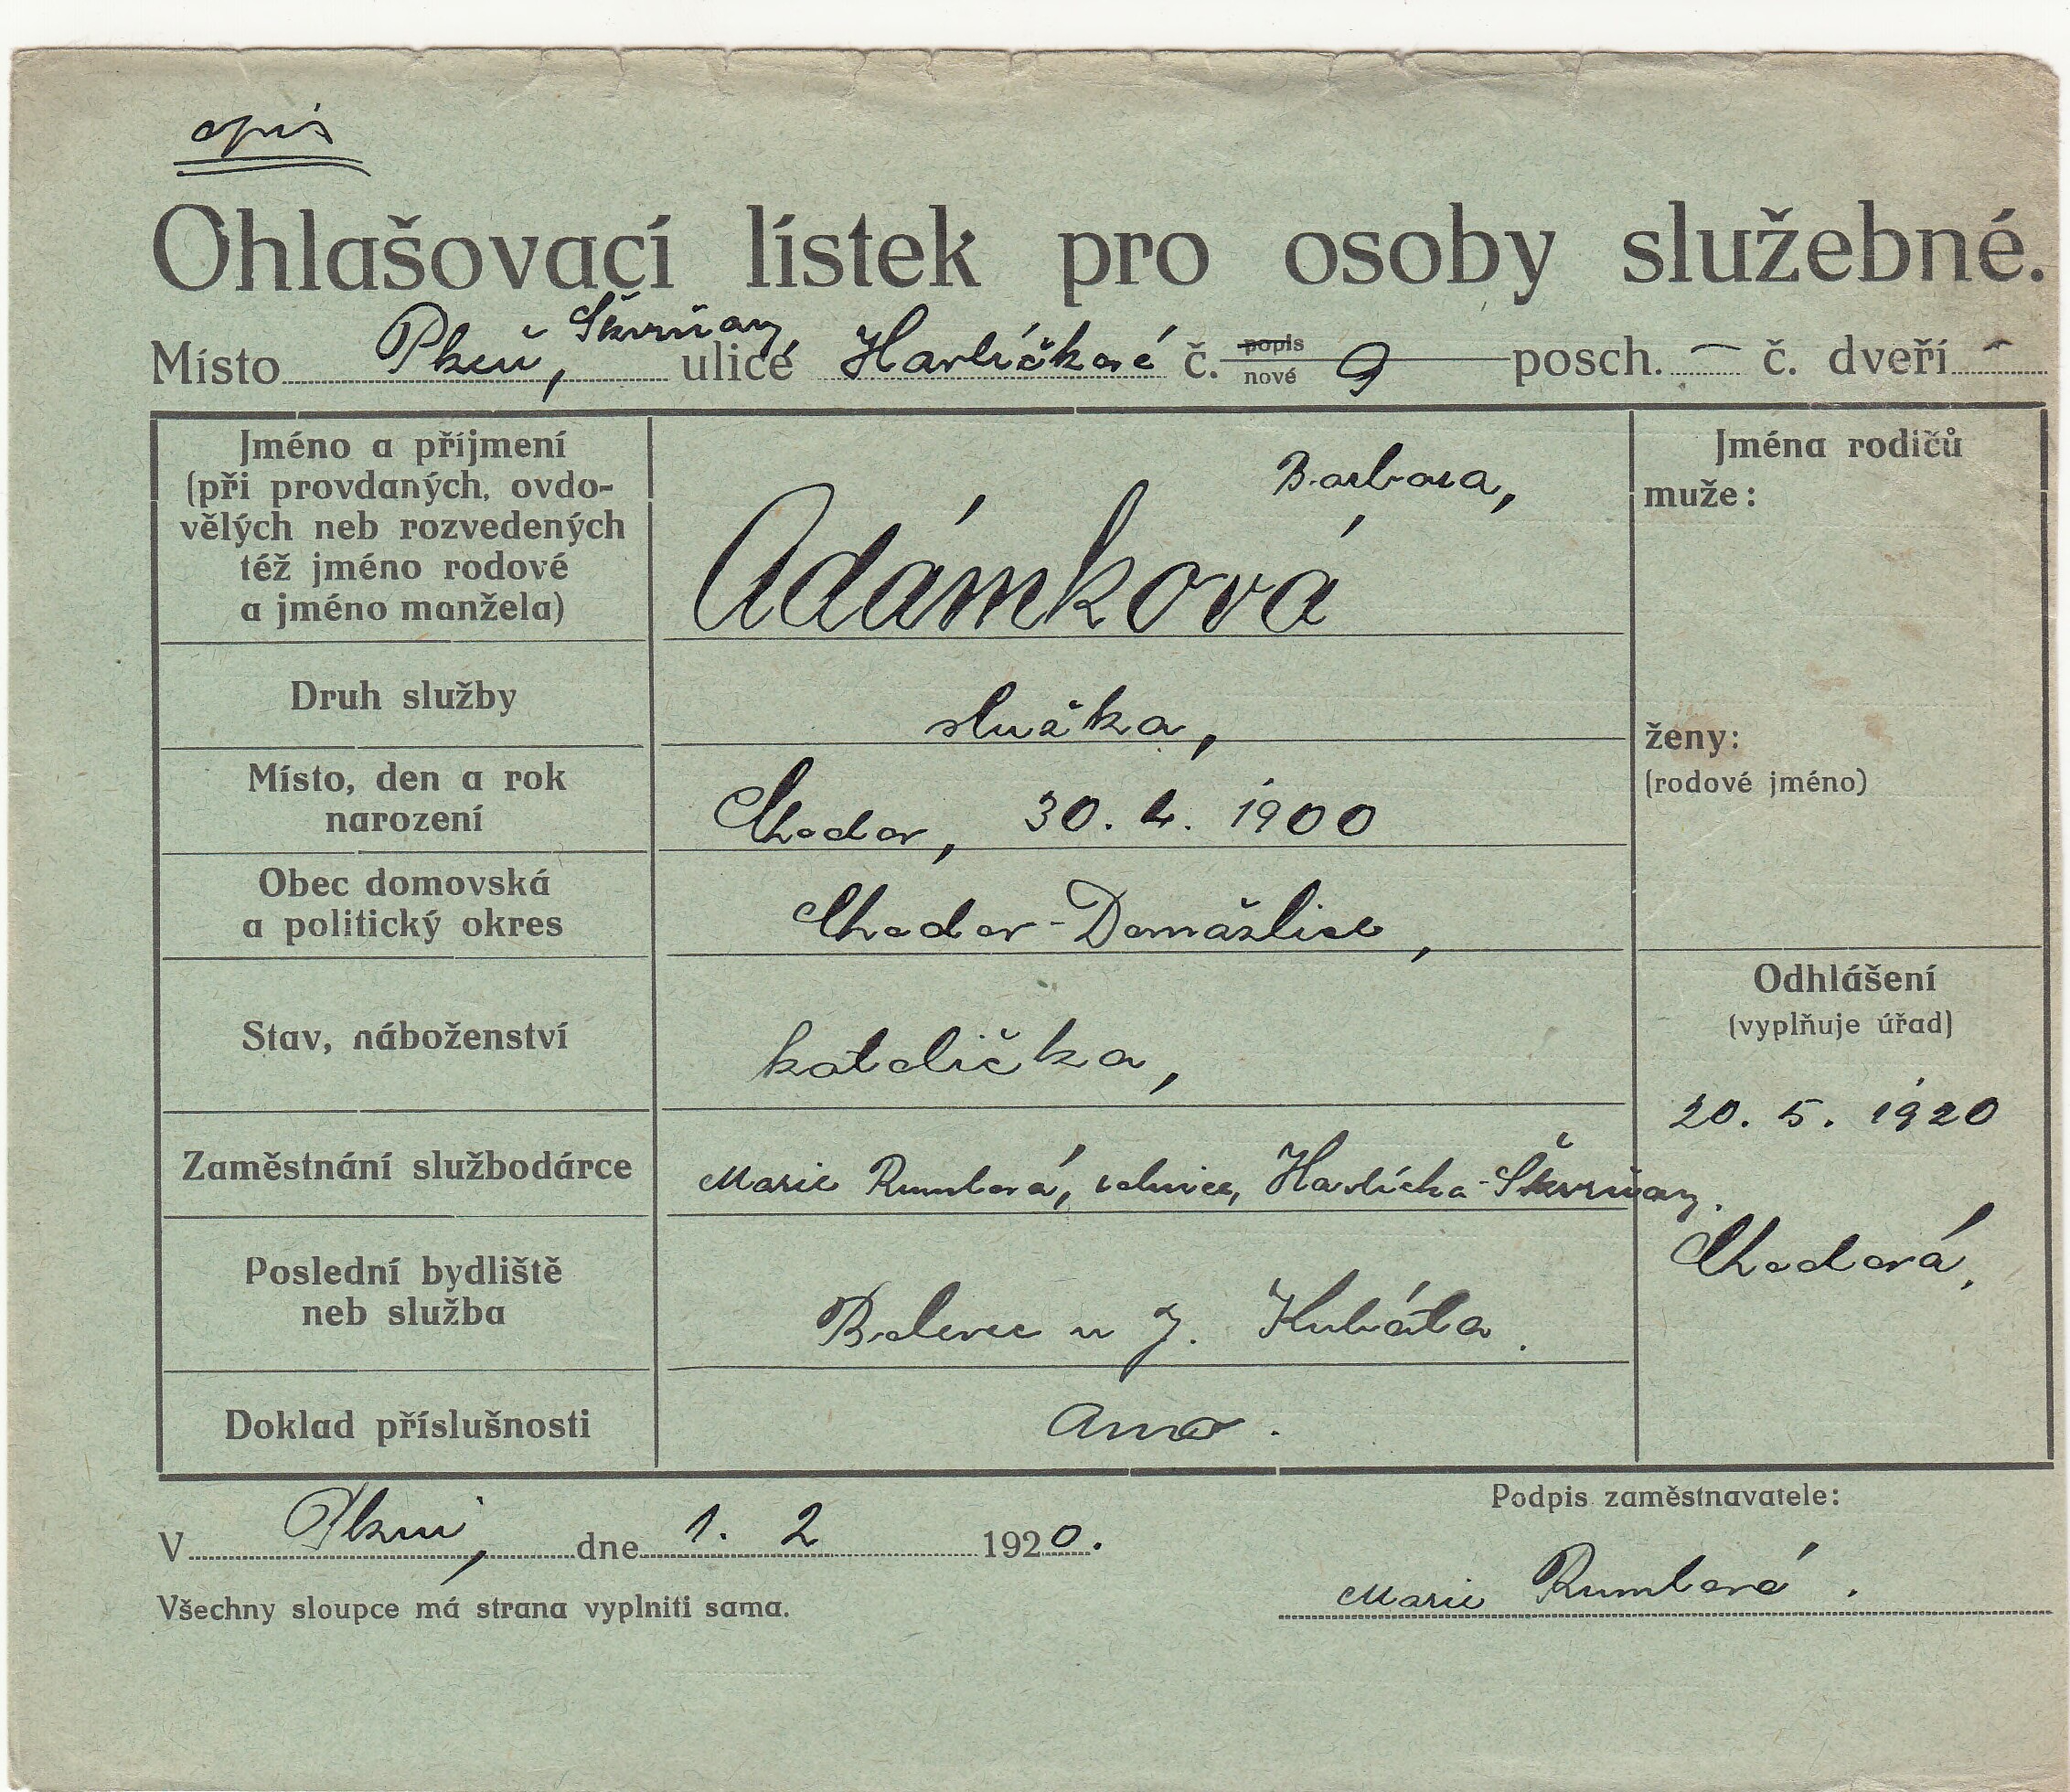 opis
Ohlašovací lístek pro osoby služebné.
Místo Plzeň, Škvrňany ulicé Havlíčkové č. popis nové 9 posch. – č. dveří –
Jméno a příjmení
(při provdaných, ovdo-
vělých neb rozvedených
též jméno rodové
a jméno manžela)
Barbora,
Adámková
Jména rodičů
muže:
ženy:
(rodové jméno)
Druh služby
služka,
Místo, den a rok
narození
Chodov, 30. 4. 1900
Obec domovská
a politický okres
Chodov - Domažlice,
Stav, náboženství
katolička,
Odhlášení
(vyplňuje úřad)
20. 5. 1920
Chodová,
Zaměstnání službodárce
Marie Rumlová, rolnice, Havlíčka - Škvrňany.
Poslední bydliště
neb služba
Bolevec u J. Kubáta.
Doklad příslušnosti
Ano.
V Plzni, dne 1. 2 1920.
Všechny sloupce má strana vyplniti sama.
Podpis zaměstnavatele:
Marie Rumlová.